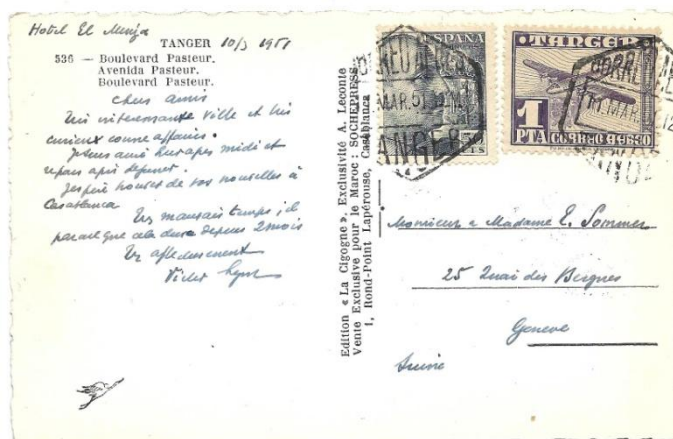 Hotel El Minza
TANGER 10/3 1951
536 — Boulevard Pasteur.
Avenida Pasteur.
Boulevard Pasteur.
Chers amis
Très intéressante ville et très
curieux comme affaires.
après midi et
repars après
J'espère trouver de vos nouvelles à
Casablanca
Très mauvais temps, il
parait que cela dure depuis 2 mois
Très affectueusement
Victor
Edition « La Cigogne », Exclusivité A. Leconte
Vente Exclusive pour le Maroc : SOCHEPRESS
1, Rond-Point Lapérouse, Casablanca
ESPAÑA
CORREO AEREO
MAR. 51
TANGER
TANGER
1 PTA CORREO AEREO
CORREO
11 MAR. 51 12
Monsieur & Madame E. Sommer
25 Quai des Bergues
Geneve
Suisse